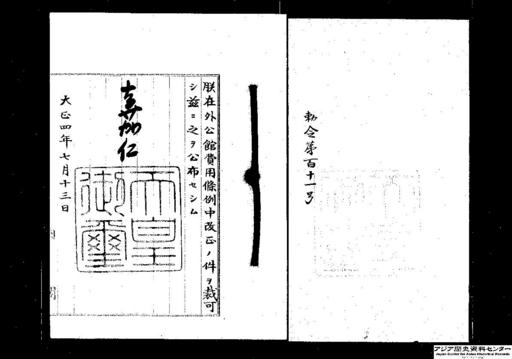 勅令第百十一号
朕在外公館費用條例中改正ノ件ヲ裁可
シ茲ニ之ヲ公布セシム
嘉仁
天皇
御璽
大正四年七月十三日
内閣
アジア歴史資料センター
Japan Center for Asian Historical Records